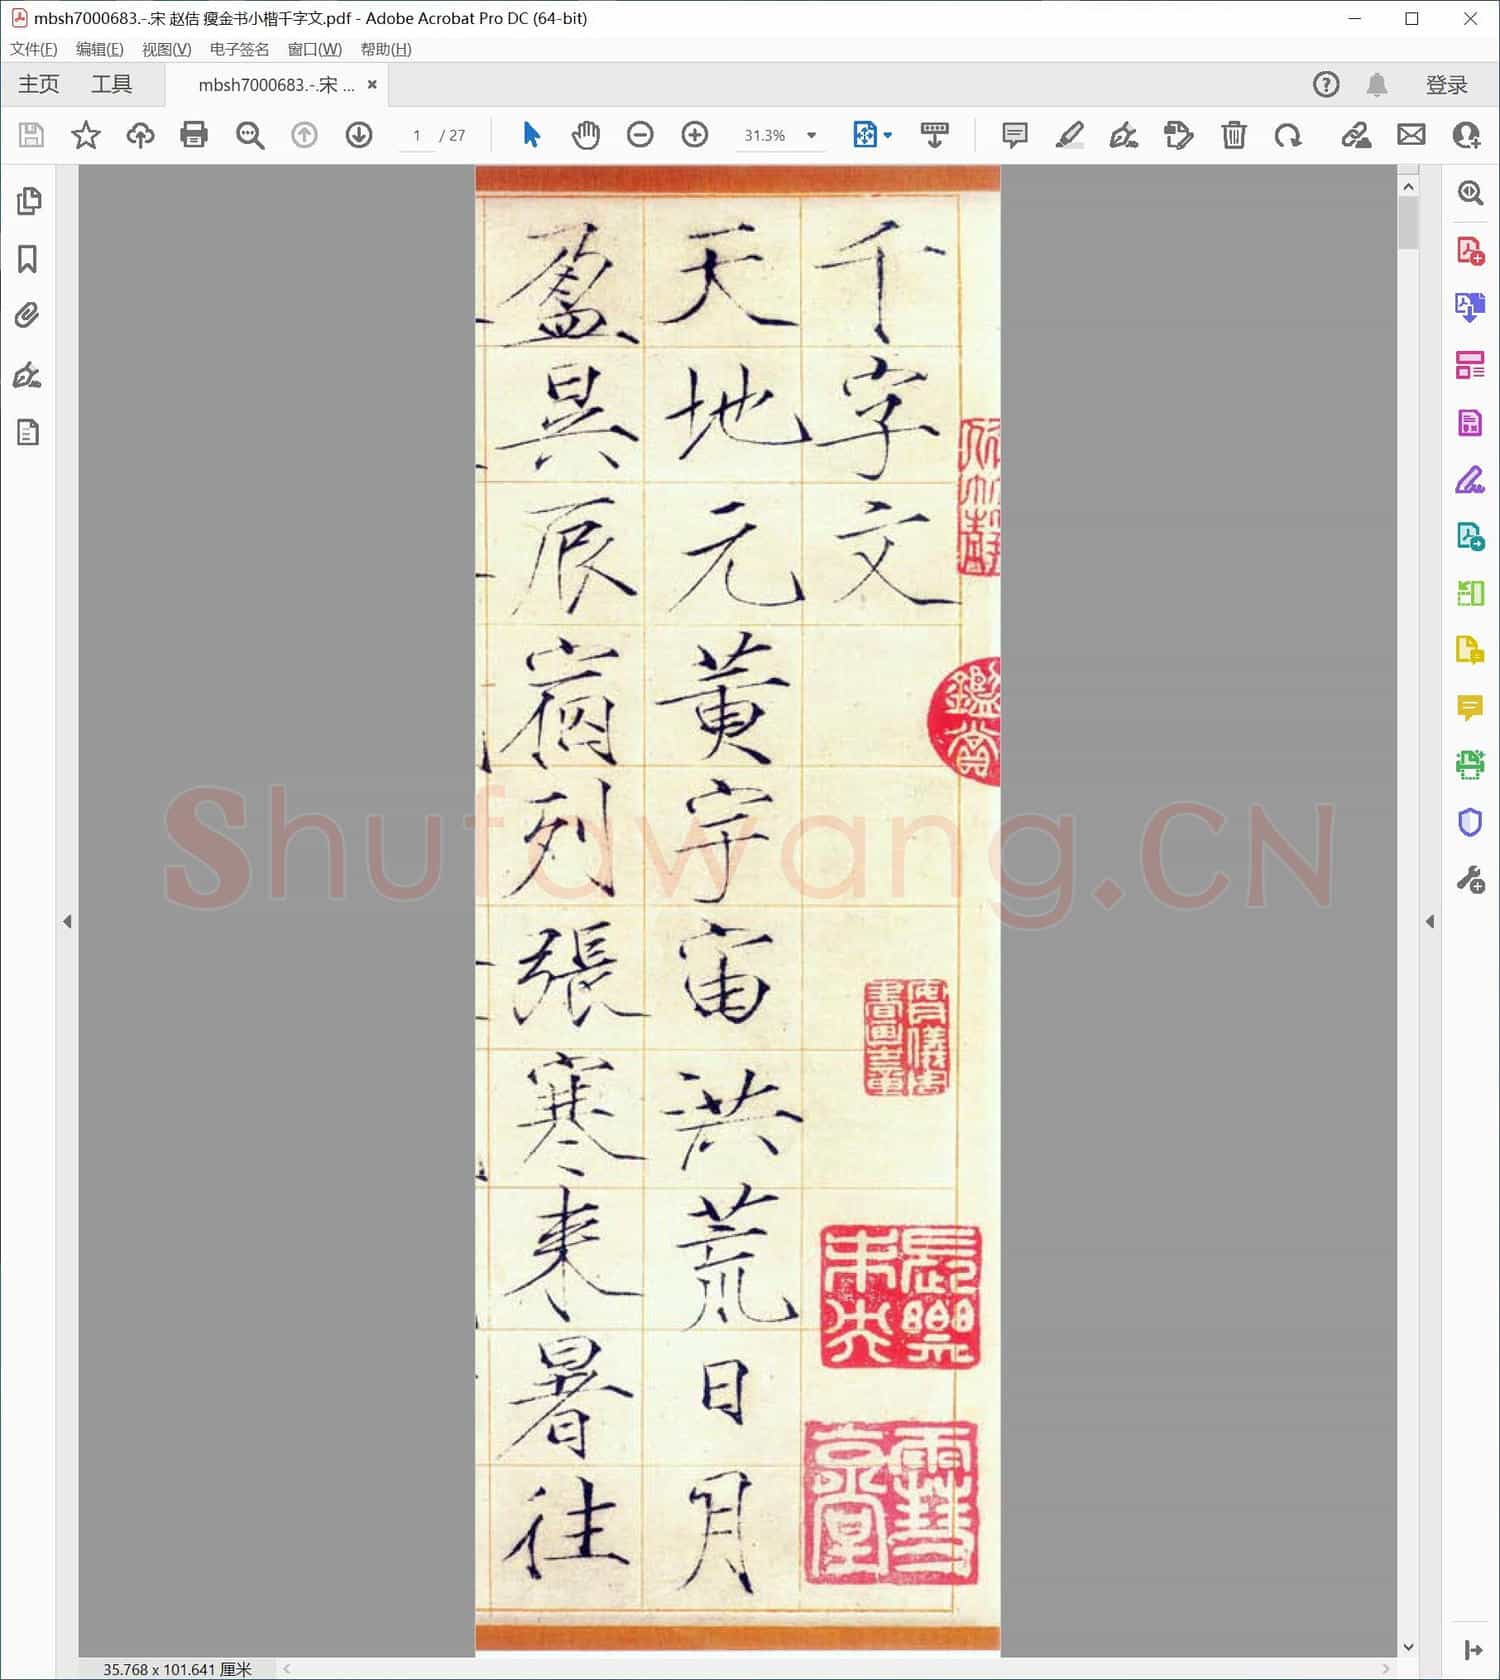 mbsh7000683.-.宋 赵佶 瘦金书小楷千字文.pdf - Adobe Acrobat Pro DC (64-bit)
文件(F) 编辑(E) 视图(V) 电子签名 窗口(W) 帮助(H)
主页 工具 mbsh7000683.-.宋 ... 登录
1 / 27 31.3%
千字文
天地元黄宇宙洪荒日月
盈昃辰宿列張寒来暑往
鑑賞
長樂未央
Shufawang.CN
35.768 x 101.641 厘米